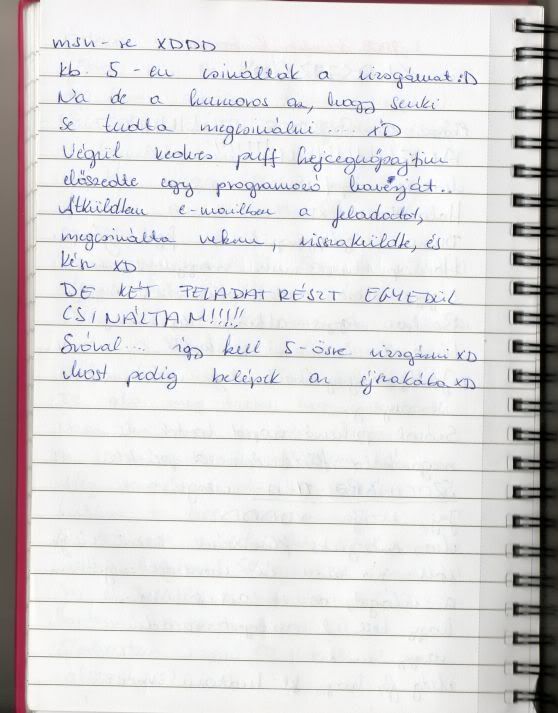 msn-re XDDD
kb. 5-en csinálták a vizsgámat :D
Na de a humoros az, hogy senki
se tudta megcsinálni .... XD
Végül kedves puff hejcegnőpajtim
előszedte egy programozó haverját..
Átküldtem e-mailben a feladatot,
megcsinálta nekem, visszaküldte, és
kész XD
DE KÉT FELADATRÉSZT EGYEDÜL
CSINÁLTAM!!!!!
Szóval... így kell 5-ösre vizsgázni XD
Most pedig belépek az éjszakába XD